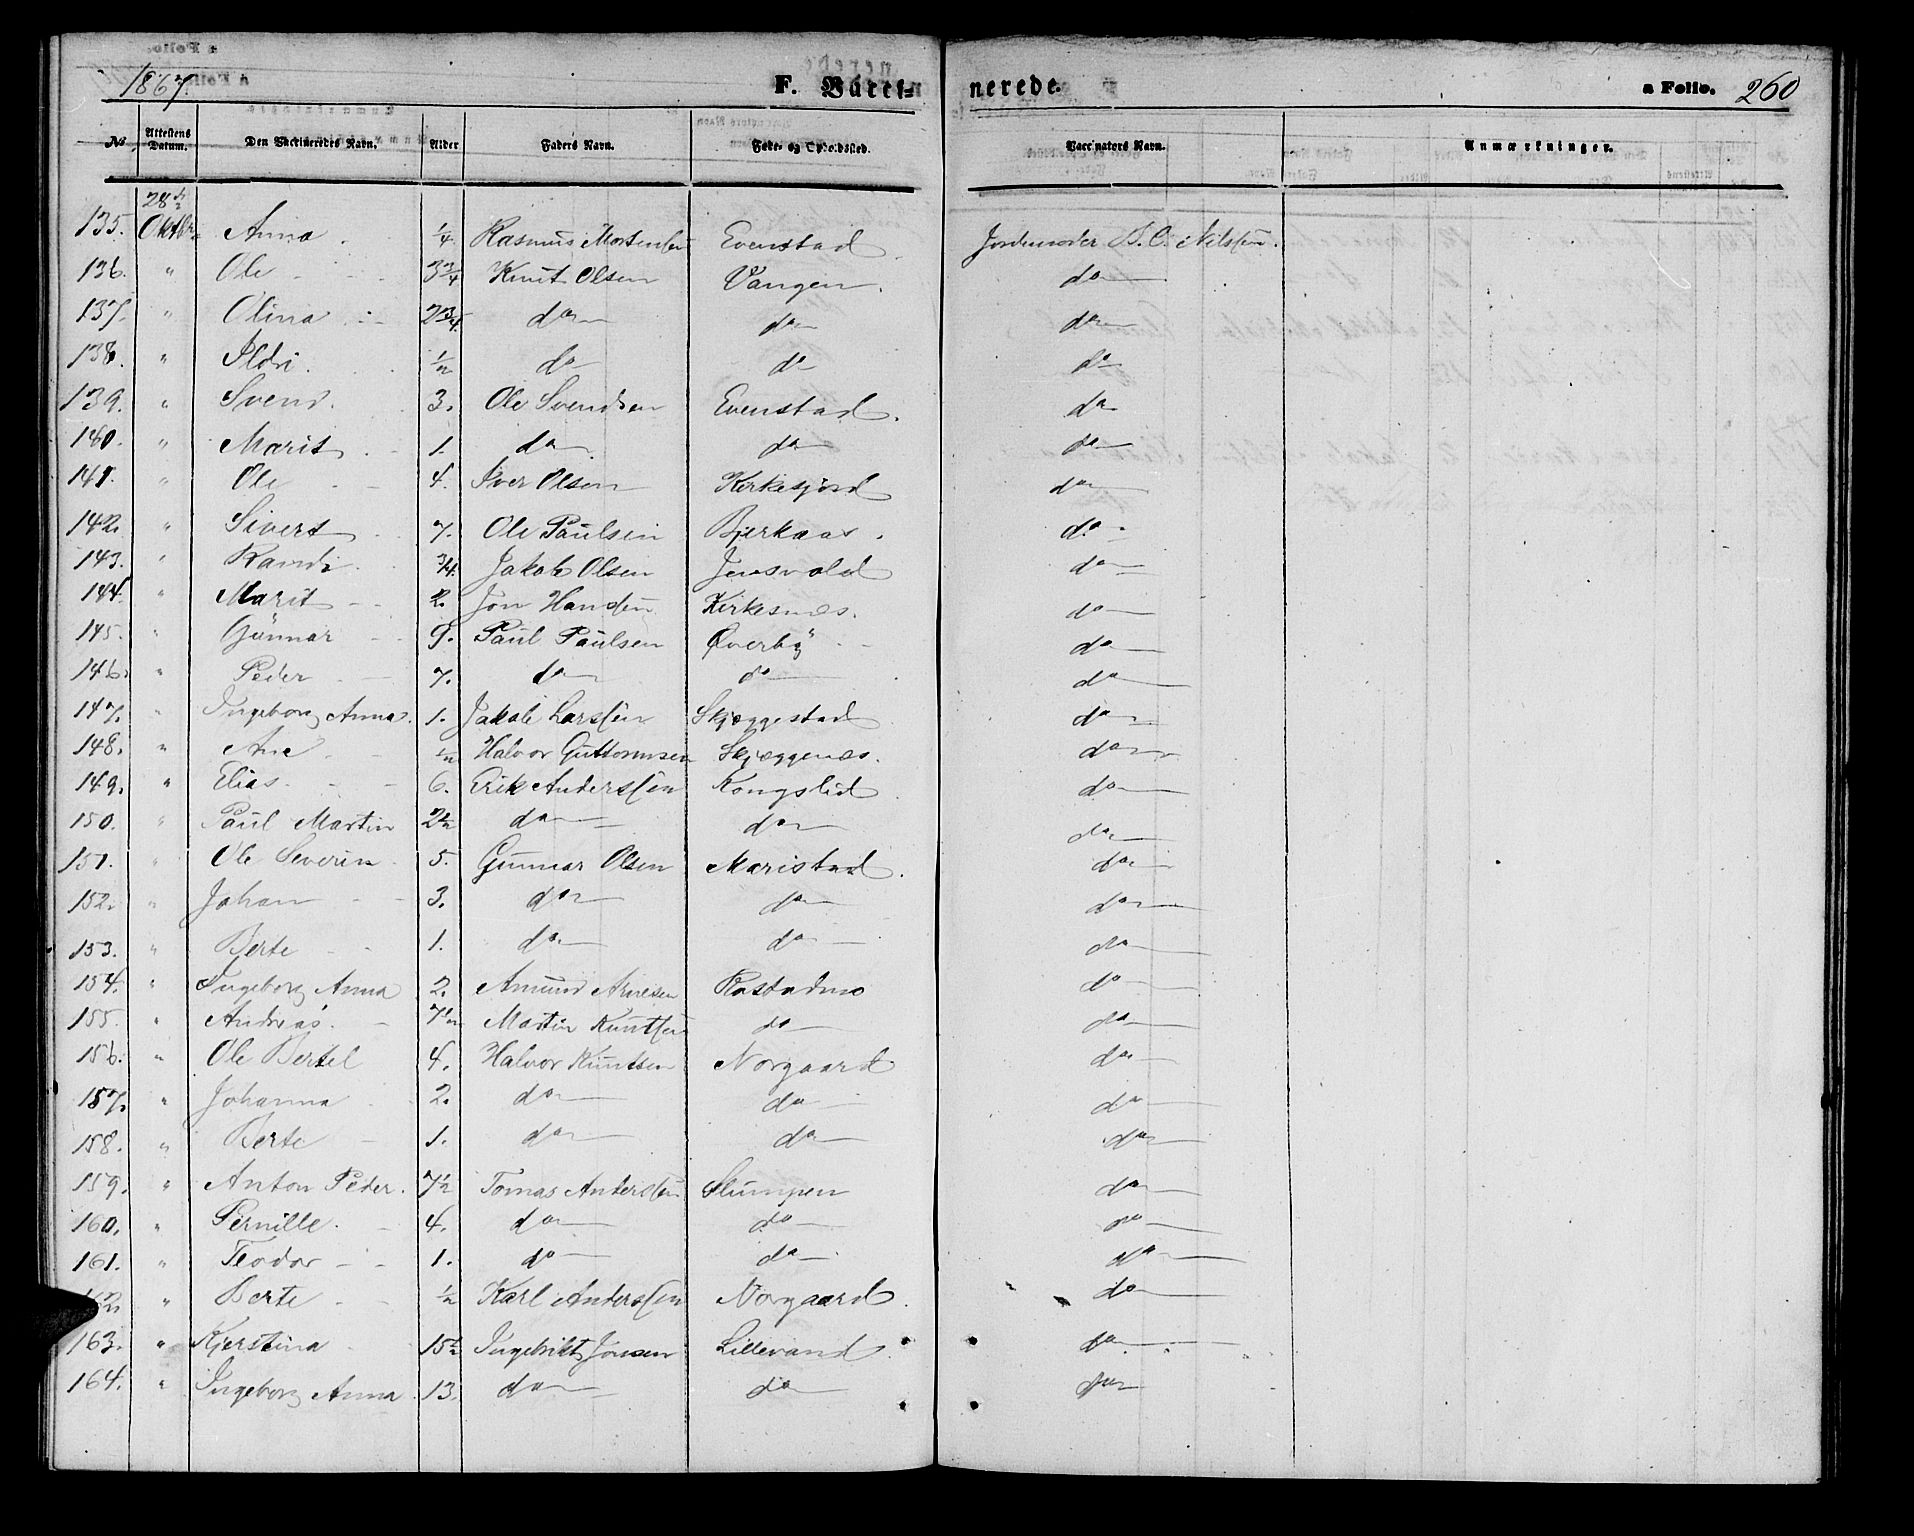 1867. F. Vacci- nerede. a Folio. 260
No. Attestens Datum. Den Vaccineredes Navn. Alder Faders Navn. Føde- og Opholdssted. Vaccinators Navn. Anmærkninger.
135. 28de Oktbr. Anna 1/4. Rasmus Mortensen Evenstad Jordemoder B. C. Nilssen.
136. " Ole 3 3/4 Knut Olsen Vangen. do
137. " Olina 2 3/4. do do do
138. " Ildri. 1/2 do do do
139. " Svend. 3. Ole Svendsen Evenstad. do
140. " Marit 1. do do do
141. " Ole 4. Iver Olsen Kirkesjord do
142. " Sivert 7. Ole Paulsen Bjerkaas. do
143. " Randi. 3/4. Jakob Olsen Jensvold do
144. " Marit 2. Jon Hansen Kirkesnæs. do
145. " Gunnar 9. Paul Paulsen Øverby do
146. " Peder 7. do do do
147. " Ingeborg Anna. 1. Jakob Larssen Skjæggestad do
148. " Ane 1/2 Halvor Guttormsen Skjæggenæs. do
149. " Elias. 6. Erik Anderssen Kongslid do
150. " Paul Martin 2 1/2 do do do
151. " Ole Severin 5. Gunnar Olsen Maristad. do
152. " Johan 3. do do do
153. " Berte 1. do do do
154. " Ingeborg Anna 2. Amund Arnesen Rostadmo do
155. " Andreas. 7 1/2 Martin Knutsen do do
156. " Ole Bertel 4. Halvor Knutsen Norgaard do
157. " Johanna 2. do do do
158. " Berte 1. do do do
159. " Anton Peder. 7 1/2 Tomas Anderssen Slumpen do
160. " Pernille. 4. do do do
161. " Teodor 1. do do do
162. " Berte 1/2 Karl Anderssen Norgaard. do
163. " Kjerstina 15 1/2 Ingebrikt Jonsen Lillevand do
164. " Ingeborg Anna 13. do do do